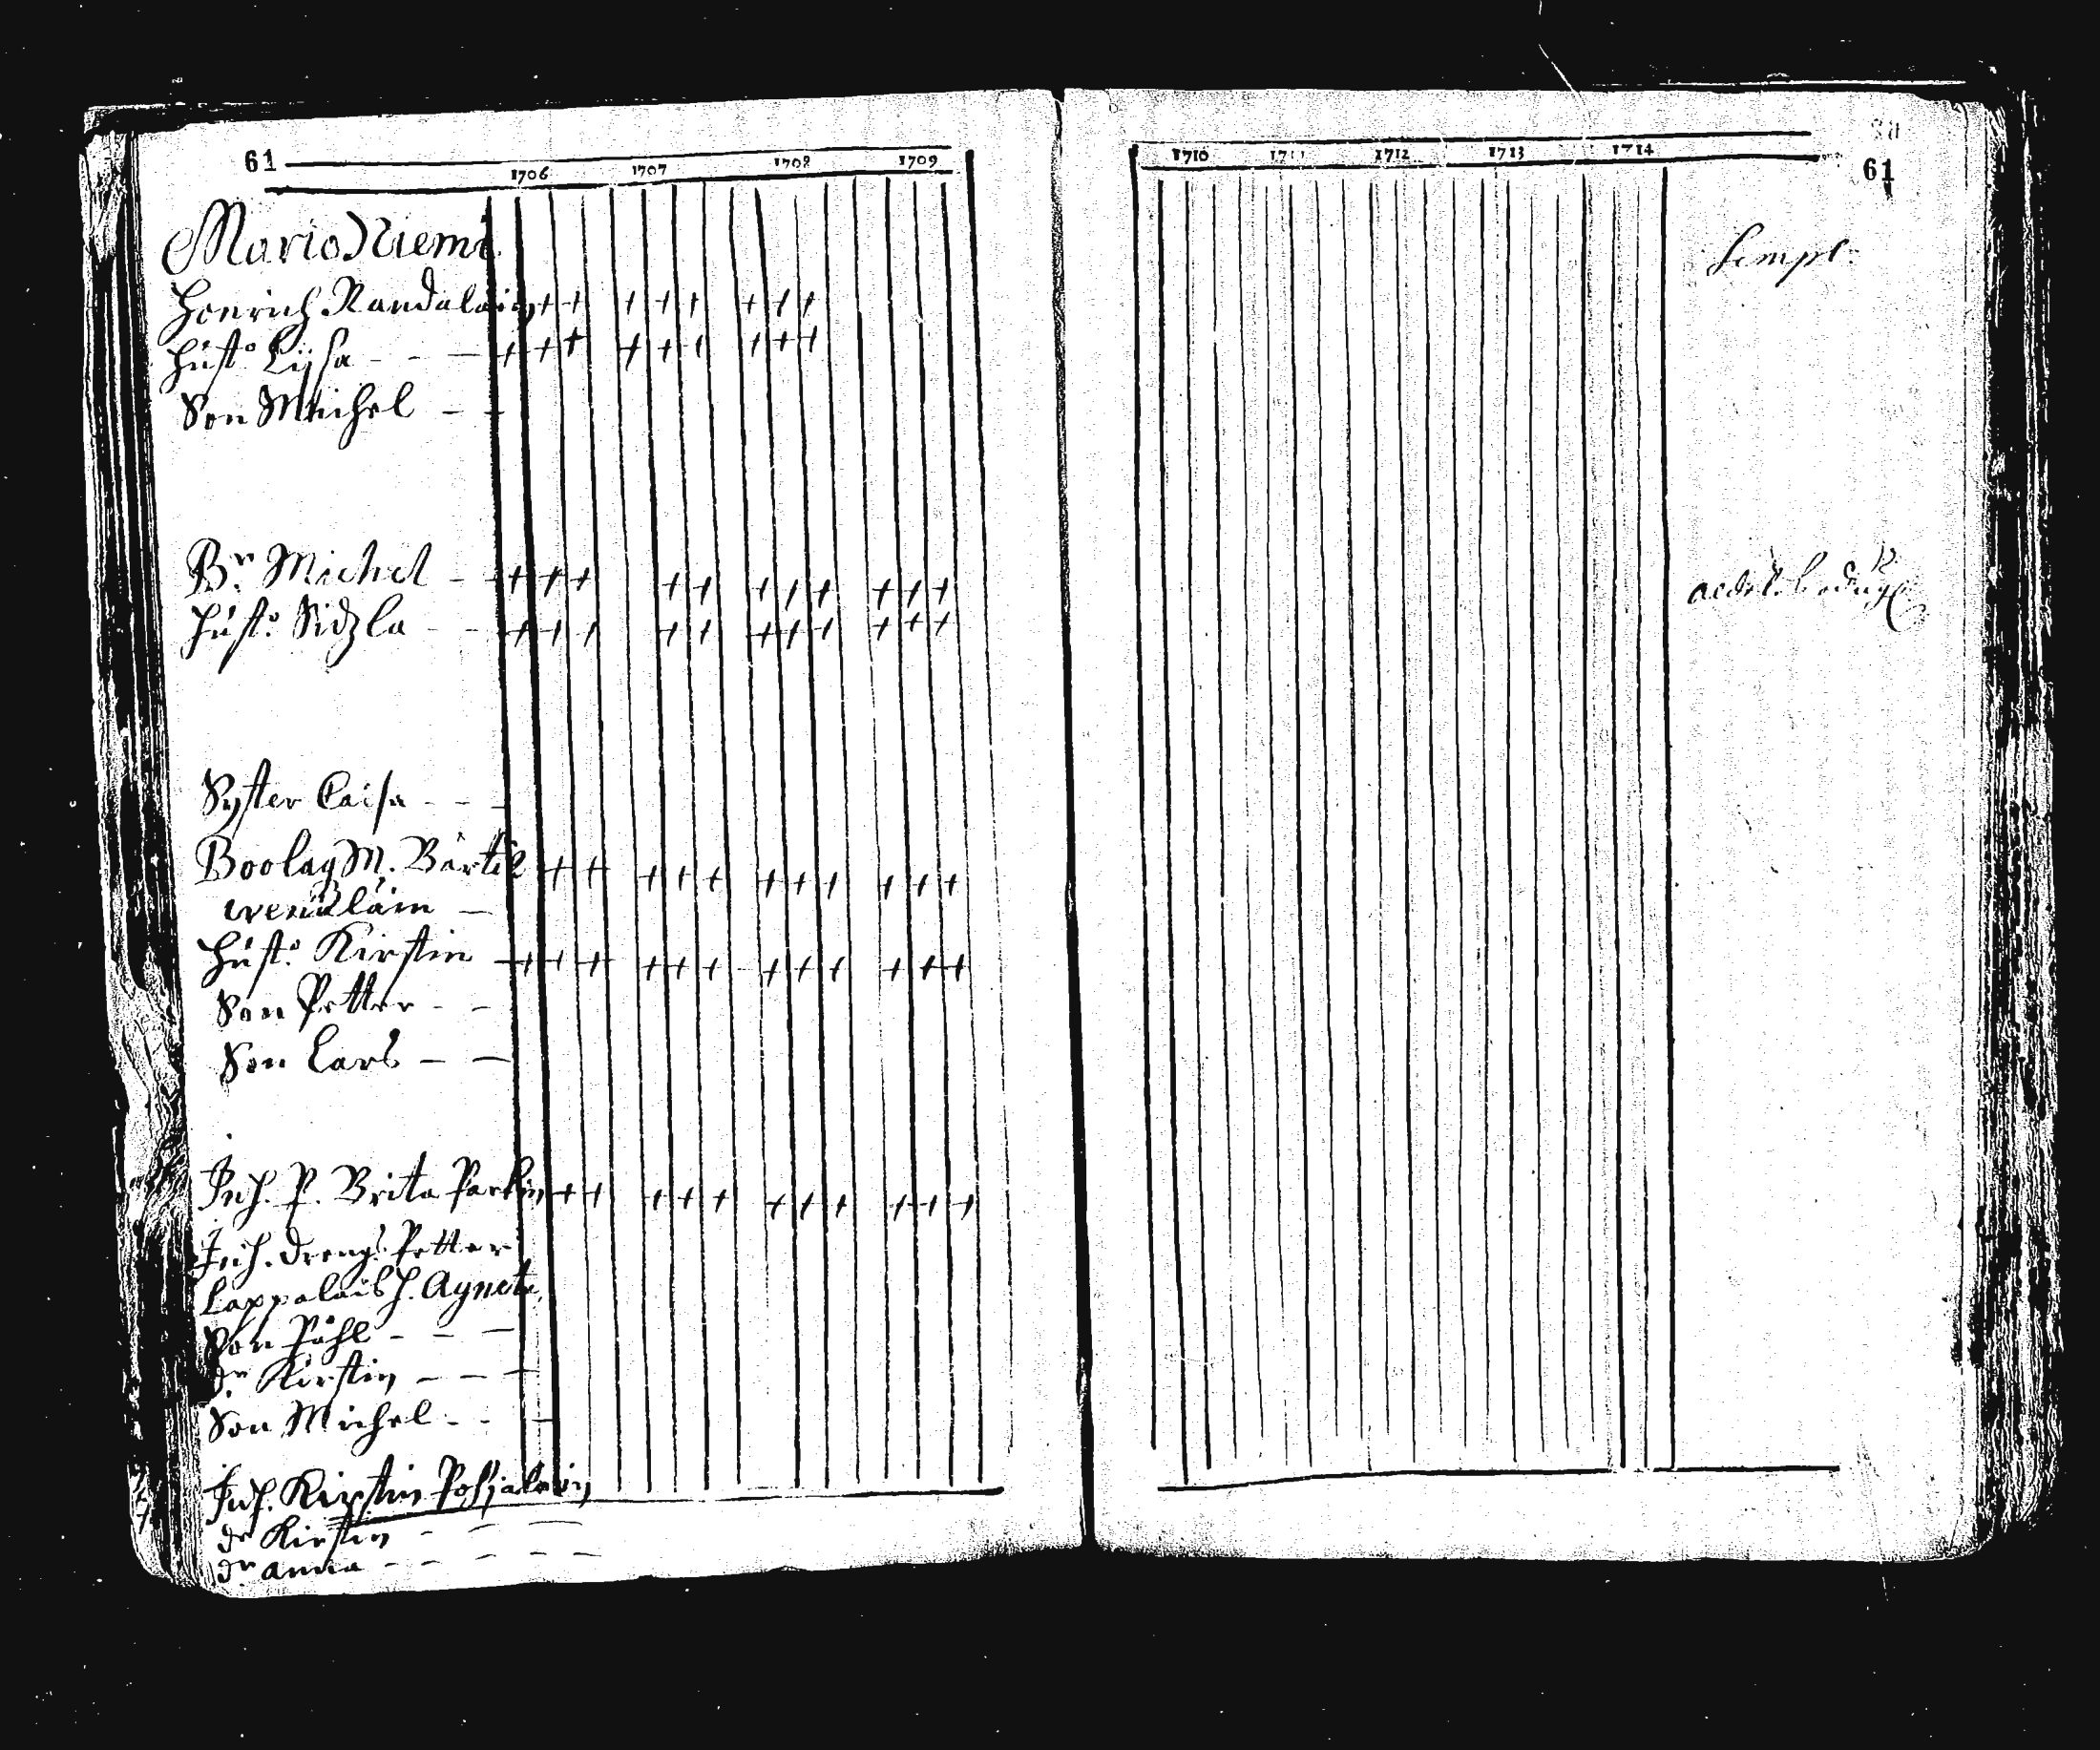 61
1706 1707 1708 1709
Mario Niemi
Henrich Randalain
Hust: Lijsa - - -
Son Michel - -
Br. Michel - -
Hust: Sidzla - -
Syster Caisa - - -
Boolag M. Bärtil
Wenäläin -
Hust: Kirstin
Son Petter - -
Son Lars - -
Inh. P. Brita Parkin
Inh. Drengs Petter
Lappalais H. Agneta
Son Påhl - - -
Dr Kirstin - - -
Son Michel - - -
Inh. Kirstin Pohjalain
Dr Kirstin - - -
Dr Anna - - - - -
1710 1711 1712 1713 1714
61
Simpl.